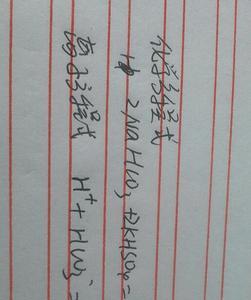 化学方程式
2NaHCO₃+2KHSO₄=
离子方程式 H⁺+HCO₃⁻=